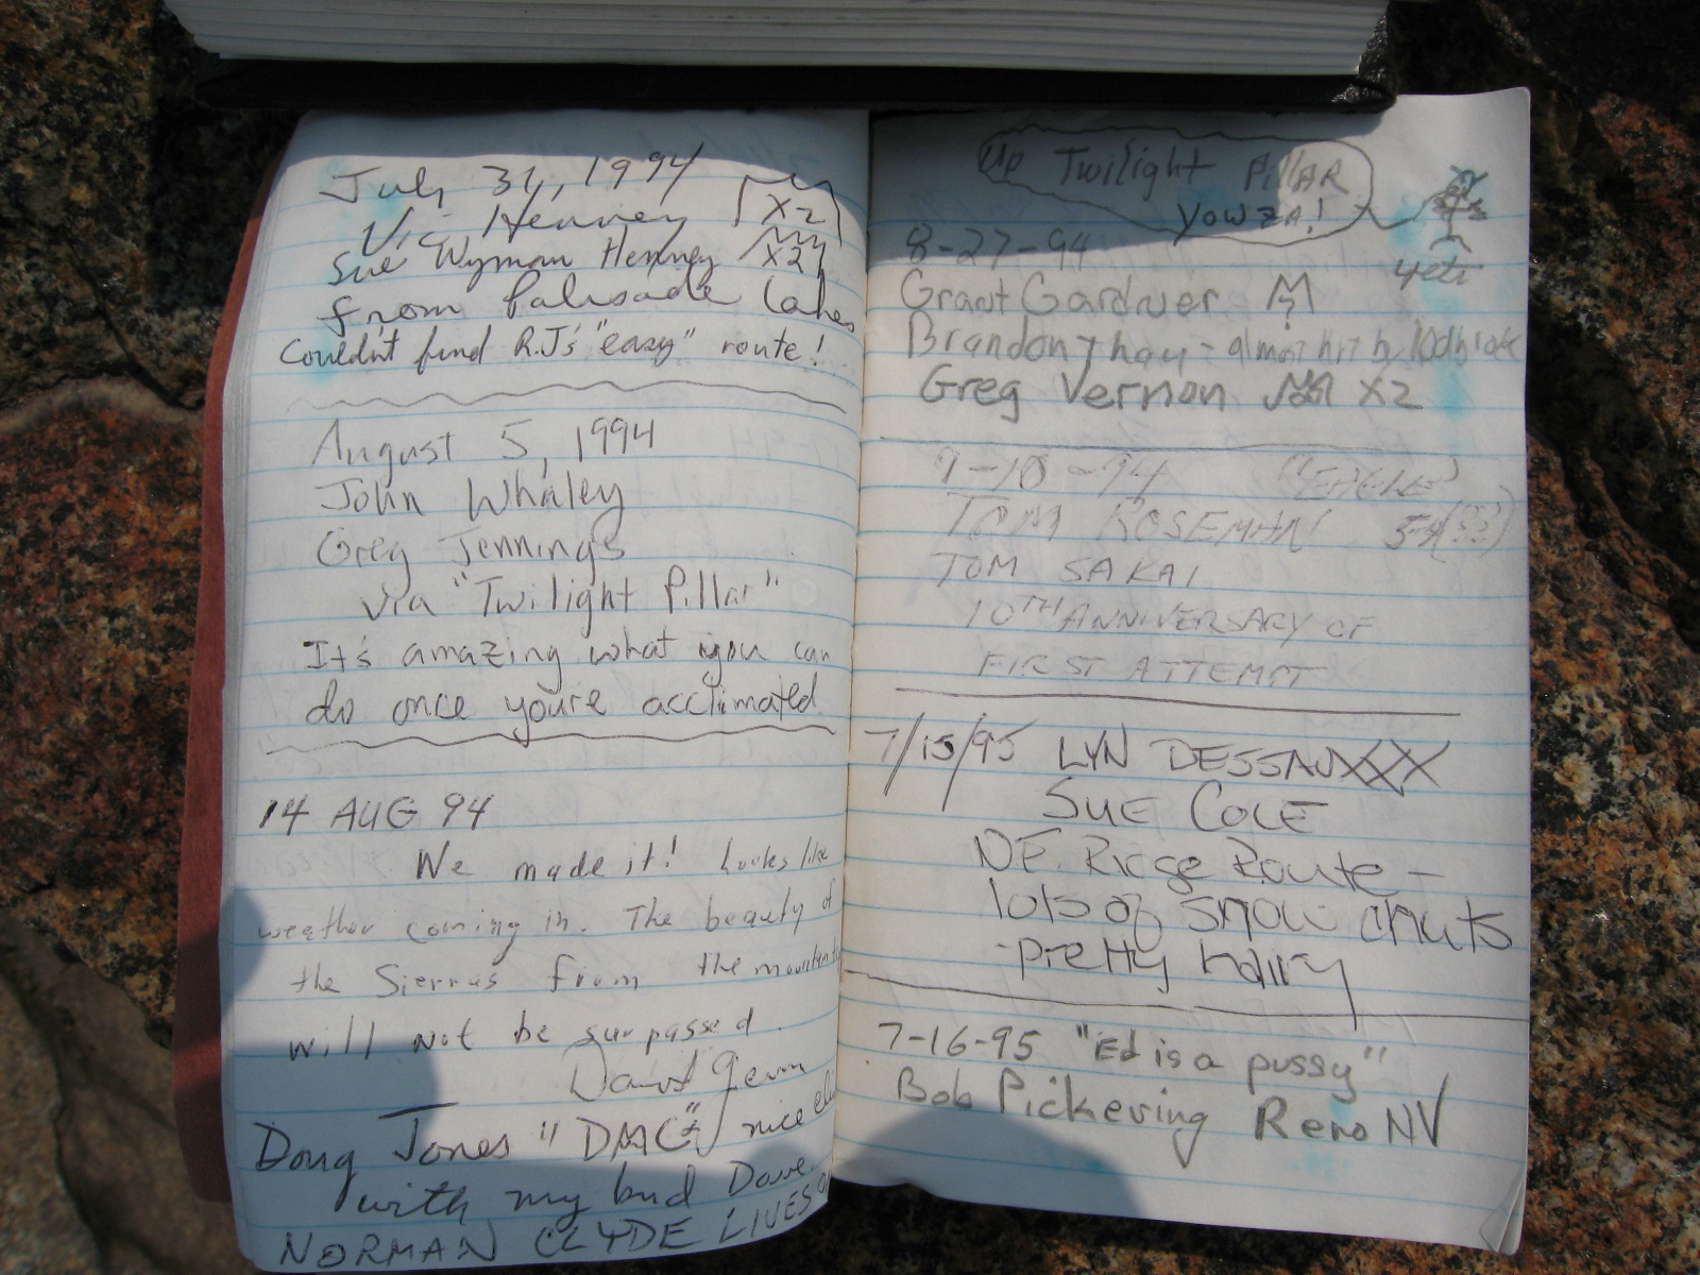 July 31, 1994
Vic Henney X2
Sue Wyman Henney X2
from Palisade Lakes
Couldn't find R.J's "easy" route!
August 5, 1994
John Whaley
Greg Jennings
via "Twilight Pillar"
It's amazing what you can
do once you're acclimated
14 AUG 94
We made it! Looks like
weather coming in. The beauty of
the Sierras from the mountain
will not be surpassed.
Doug Jones "DMC" nice
with my bud Dave.
NORMAN CLYDE LIVES
Up Twilight PILLAR
YOWZA!
yeti
8-27-94
Grant Gardner
Brandon Thau - almost hit by
Greg Vernon X2
9-10-94
TOM ROSEMAN 5.4
TOM SAKAI
10TH ANNIVERSARY OF
FIRST ATTEMPT
7/15/95 LYN DESSAUXXX
SUE COLE
NE. Ridge Route -
lots of snow chuts
-pretty hairy
7-16-95 "Ed is a pussy"
Bob Pickering Reno NV